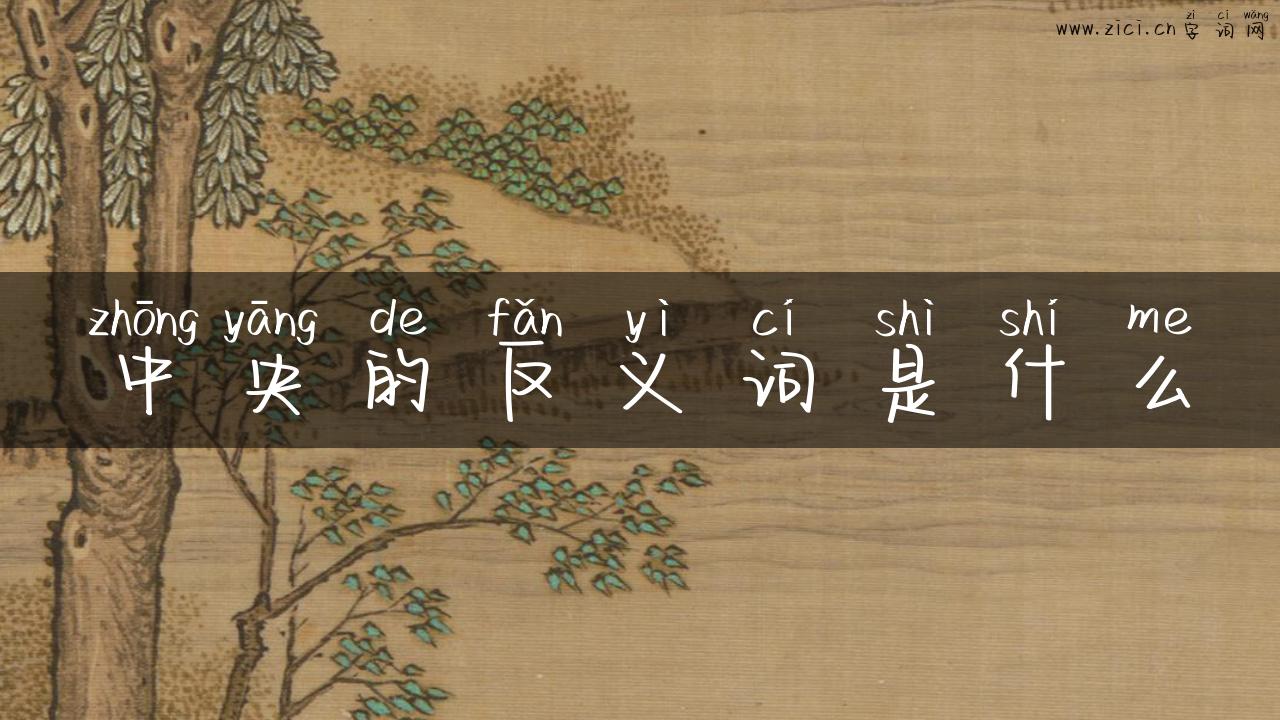 zì cí wǎng
www.zici.cn 字词网
zhōng yāng de fǎn yì cí shì shí me
中央的反义词是什么